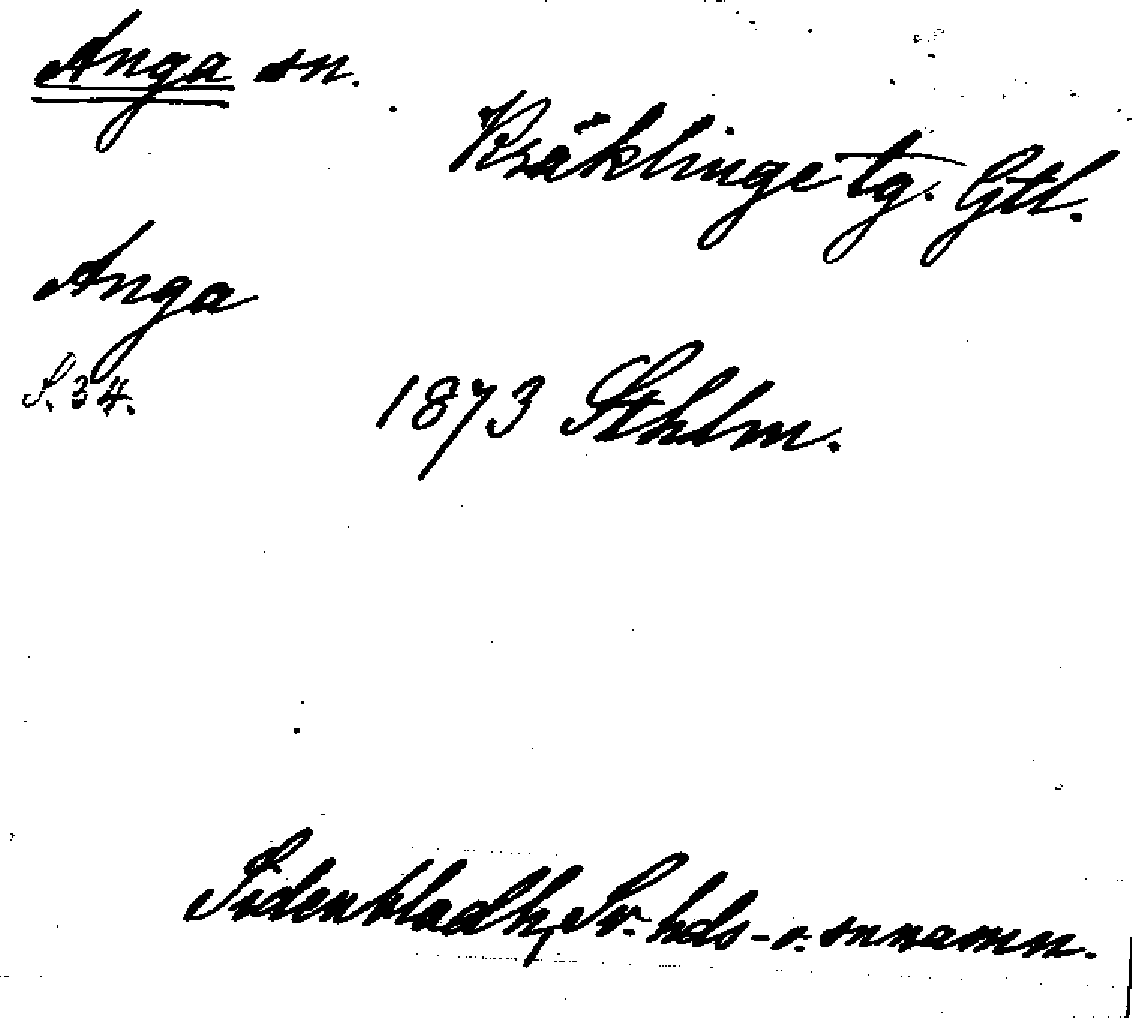 Anga sn.
Kräklinge tg. Gtl.
Anga
S. 34.
1873 Sthlm.
Sidenbladh, Sv. hds- o. snnamn.